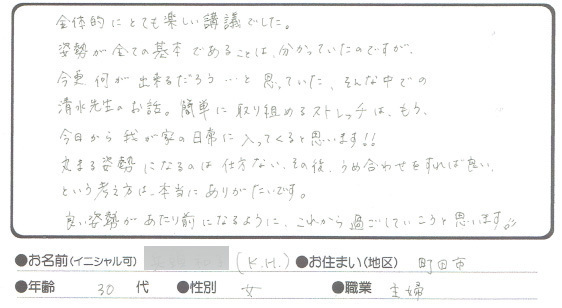 全体的にとても楽しい講議でした。
姿勢が全ての基本であることは、分かっていたのですが、
今更何が出来るだろう…と思っていた、そんな中での
清水先生のお話。簡単に取り組めるストレッチは、もう、
今日から我が家の日常に入ってくると思います!!
丸まる姿勢になるのは仕方ない、その後、うめ合わせをすれば良い、
という考え方は、本当にありがたいです。
良い姿勢があたり前になるように、これから過ごしていこうと思います。
●お名前(イニシャル可) (K.H.) ●お住まい(地区) 町田市
●年齢 30 代 ●性別 女 ●職業 主婦